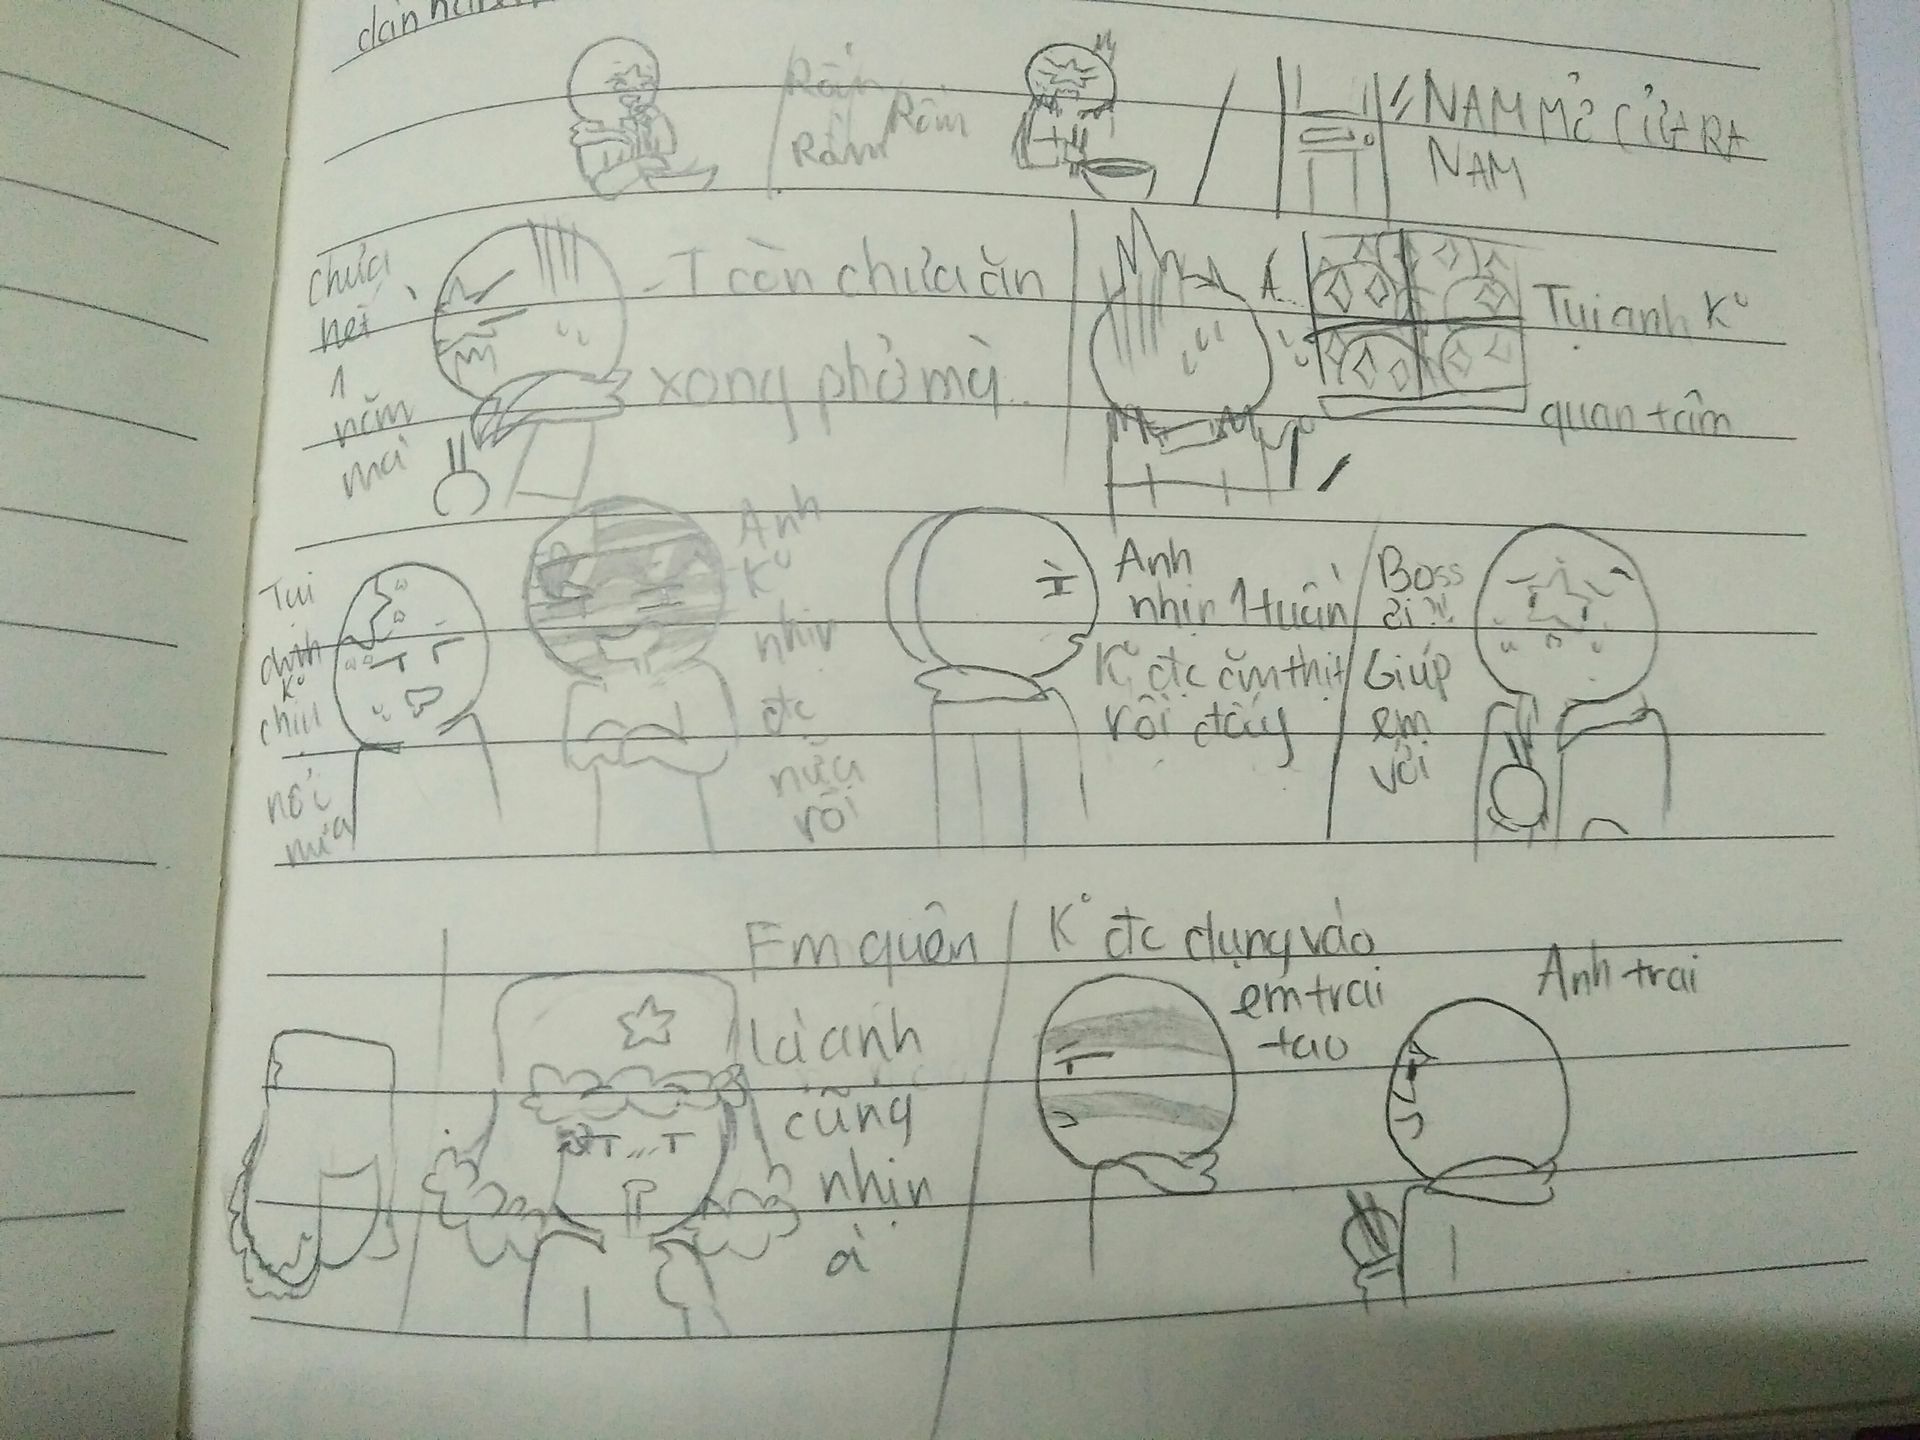 Rầm
Rầm
Rầm
NAM MỞ CỬA RA
NAM
chưa
hết
1
năm
mà
- T còn chưa ăn
xong phở mà...
A...
Tụi anh K°
quan tâm
Tụi
anh
K°
chịu
nổi
nữa
Anh
K°
nhịn
đc
nữa
rồi
Anh
nhịn 1 tuần
K° đc ăn thịt
rồi đấy
Boss
ơi??
Giúp
em
với
Em quên
là anh
cũng
nhịn
à
K° đc đụng vào
em trai
tao
Anh trai